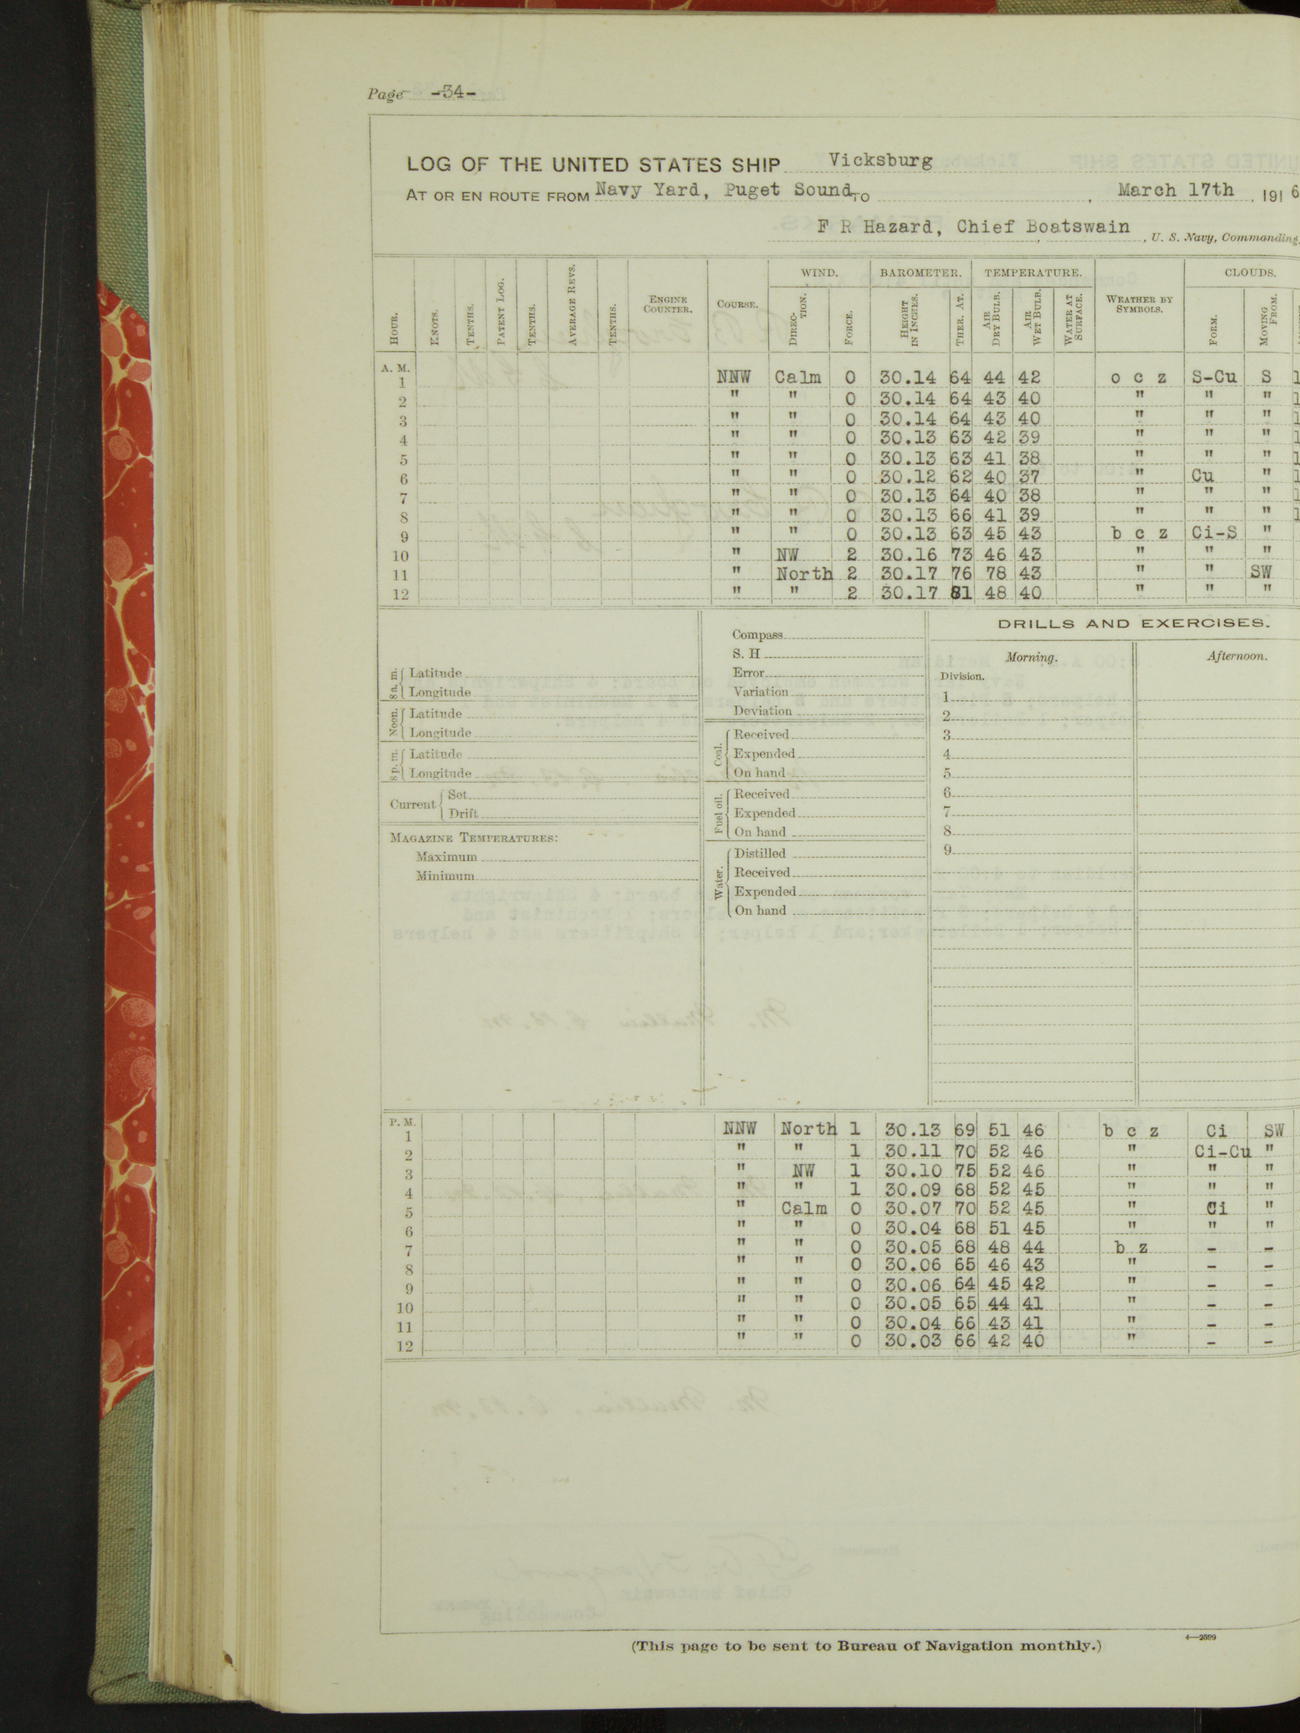 Page -34-
LOG OF THE UNITED STATES SHIP Vicksburg
AT OR EN ROUTE FROM Navy Yard, Puget Sound, TO , March 17th , 1916
F R Hazard, Chief Boatswain , U. S. Navy, Commanding,
WIND. BAROMETER. TEMPERATURE. CLOUDS.
HOUR. KNOTS. TENTHS. PATENT LOG. TENTHS. AVERAGE REVS. TENTHS. ENGINE COUNTER. COURSE. DIRECTION. FORCE. HEIGHT IN INCHES. THER. AT. AIR DRY BULB. AIR WET BULB. WATER AT SURFACE. WEATHER BY SYMBOLS. FORM. MOVING FROM.
A. M.
1 NNW Calm 0 30.14 64 44 42 o c z S-Cu S 1
2 " " 0 30.14 64 43 40 " " " 1
3 " " 0 30.14 64 43 40 " " " 1
4 " " 0 30.13 63 42 39 " " " 1
5 " " 0 30.13 63 41 38 " " " 1
6 " " 0 30.12 62 40 37 " Cu " 1
7 " " 0 30.13 64 40 38 " " " 1
8 " " 0 30.13 66 41 39 " " " 1
9 " " 0 30.13 63 45 43 b c z Ci-S "
10 " NW 2 30.16 73 46 43 " " "
11 " North 2 30.17 76 78 43 " " SW
12 " " 2 30.17 81 48 40 " " "
8 a. m. Latitude
Longitude
Noon. Latitude
Longitude
8 p. m. Latitude
Longitude
Current Set
Drift
MAGAZINE TEMPERATURES:
Maximum
Minimum
Compass
S. H
Error
Variation
Deviation
Coal. Received
Expended
On hand
Fuel oil. Received
Expended
On hand
Water. Distilled
Received
Expended
On hand
DRILLS AND EXERCISES.
Morning. Afternoon.
Division.
1
2
3
4
5
6
7
8
9
P. M.
1 NNW North 1 30.13 69 51 46 b c z Ci SW
2 " " 1 30.11 70 52 46 " Ci-Cu "
3 " NW 1 30.10 75 52 46 " " "
4 " " 1 30.09 68 52 45 " " "
5 " Calm 0 30.07 70 52 45 " Ci "
6 " " 0 30.04 68 51 45 " " "
7 " " 0 30.05 68 48 44 b z - -
8 " " 0 30.06 65 46 43 " - -
9 " " 0 30.06 64 45 42 " - -
10 " " 0 30.05 65 44 41 " - -
11 " " 0 30.04 66 43 41 " - -
12 " " 0 30.03 66 42 40 " - -
(This page to be sent to Bureau of Navigation monthly.)
4—2599